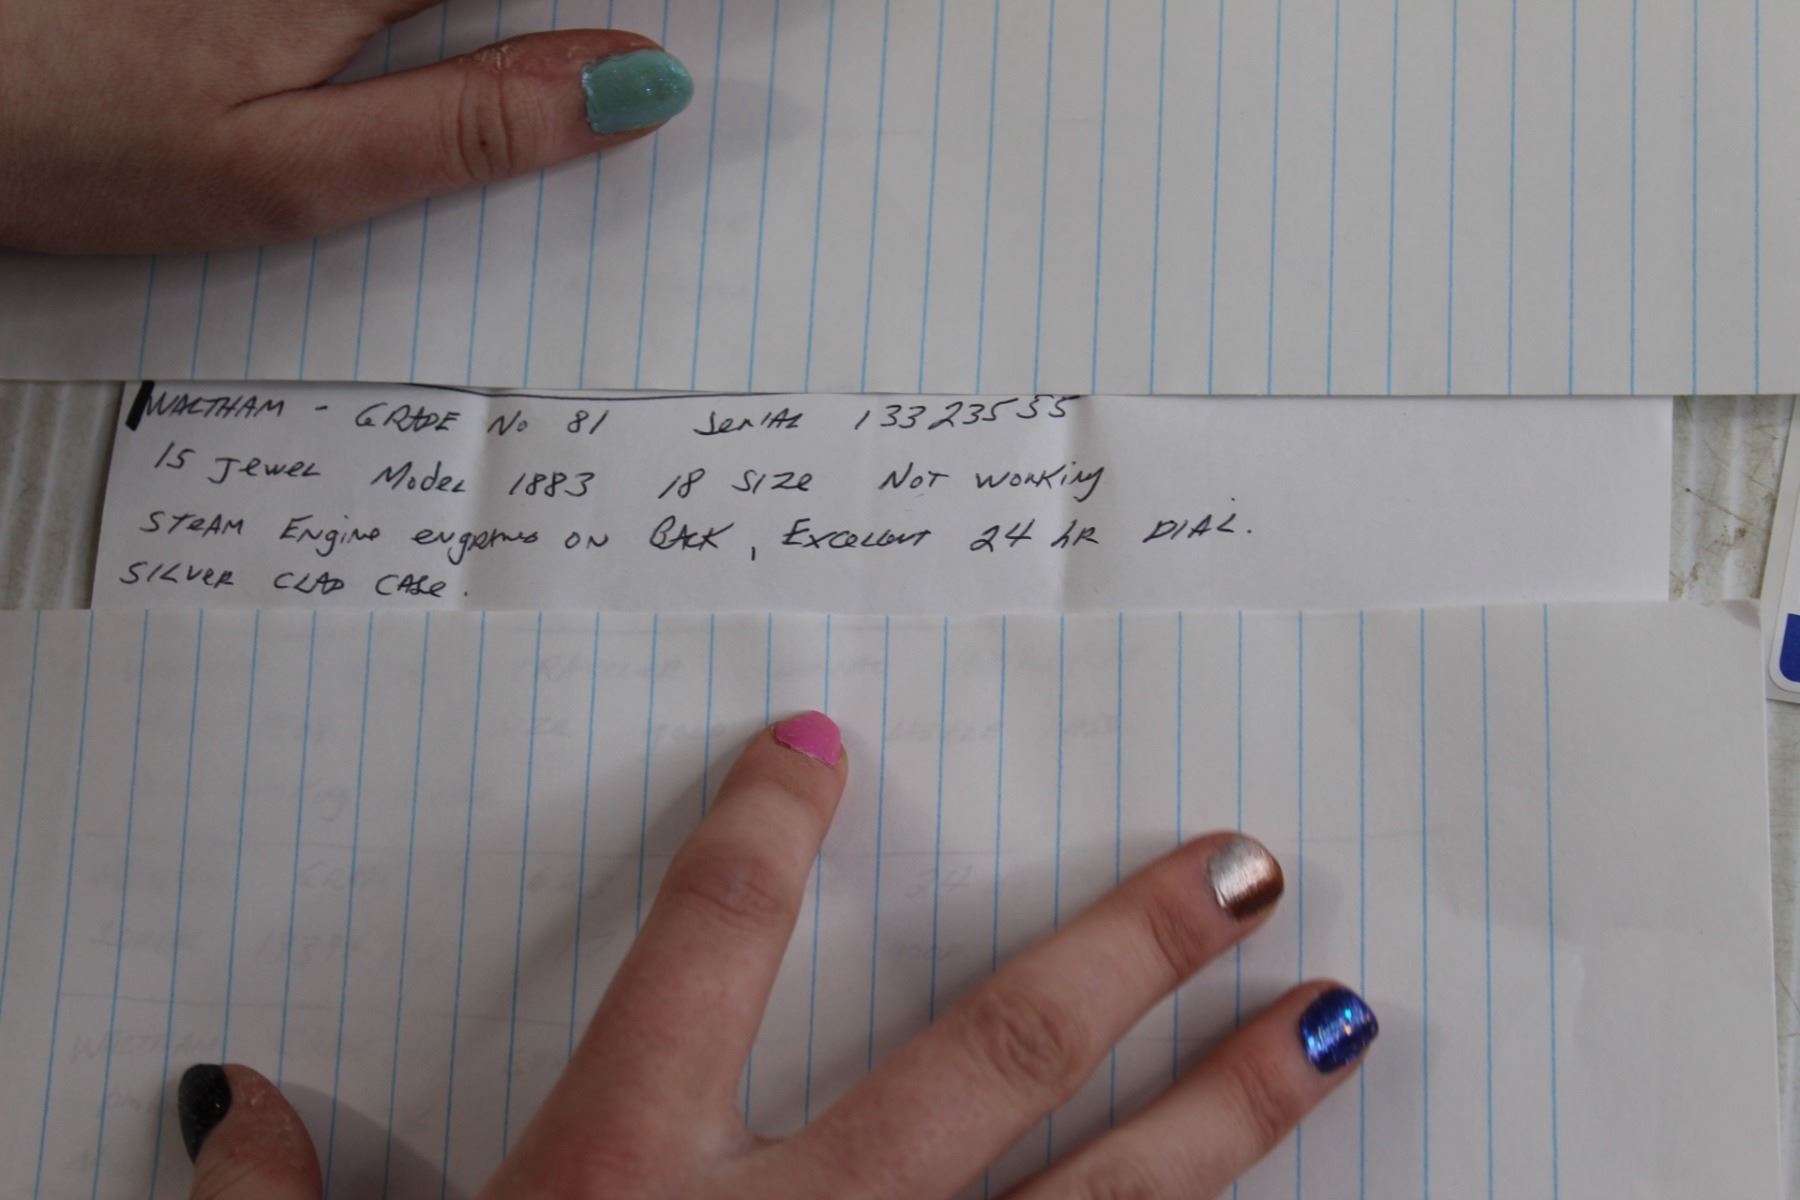 WALTHAM - GRADE No 81 SERIAL 13323555
15 Jewel Model 1883 18 SIZe NOT WORKing
STeAM Engine engraving ON BACK, Excellent 24 hR DIAL.
SILVeR CLAD CASe.